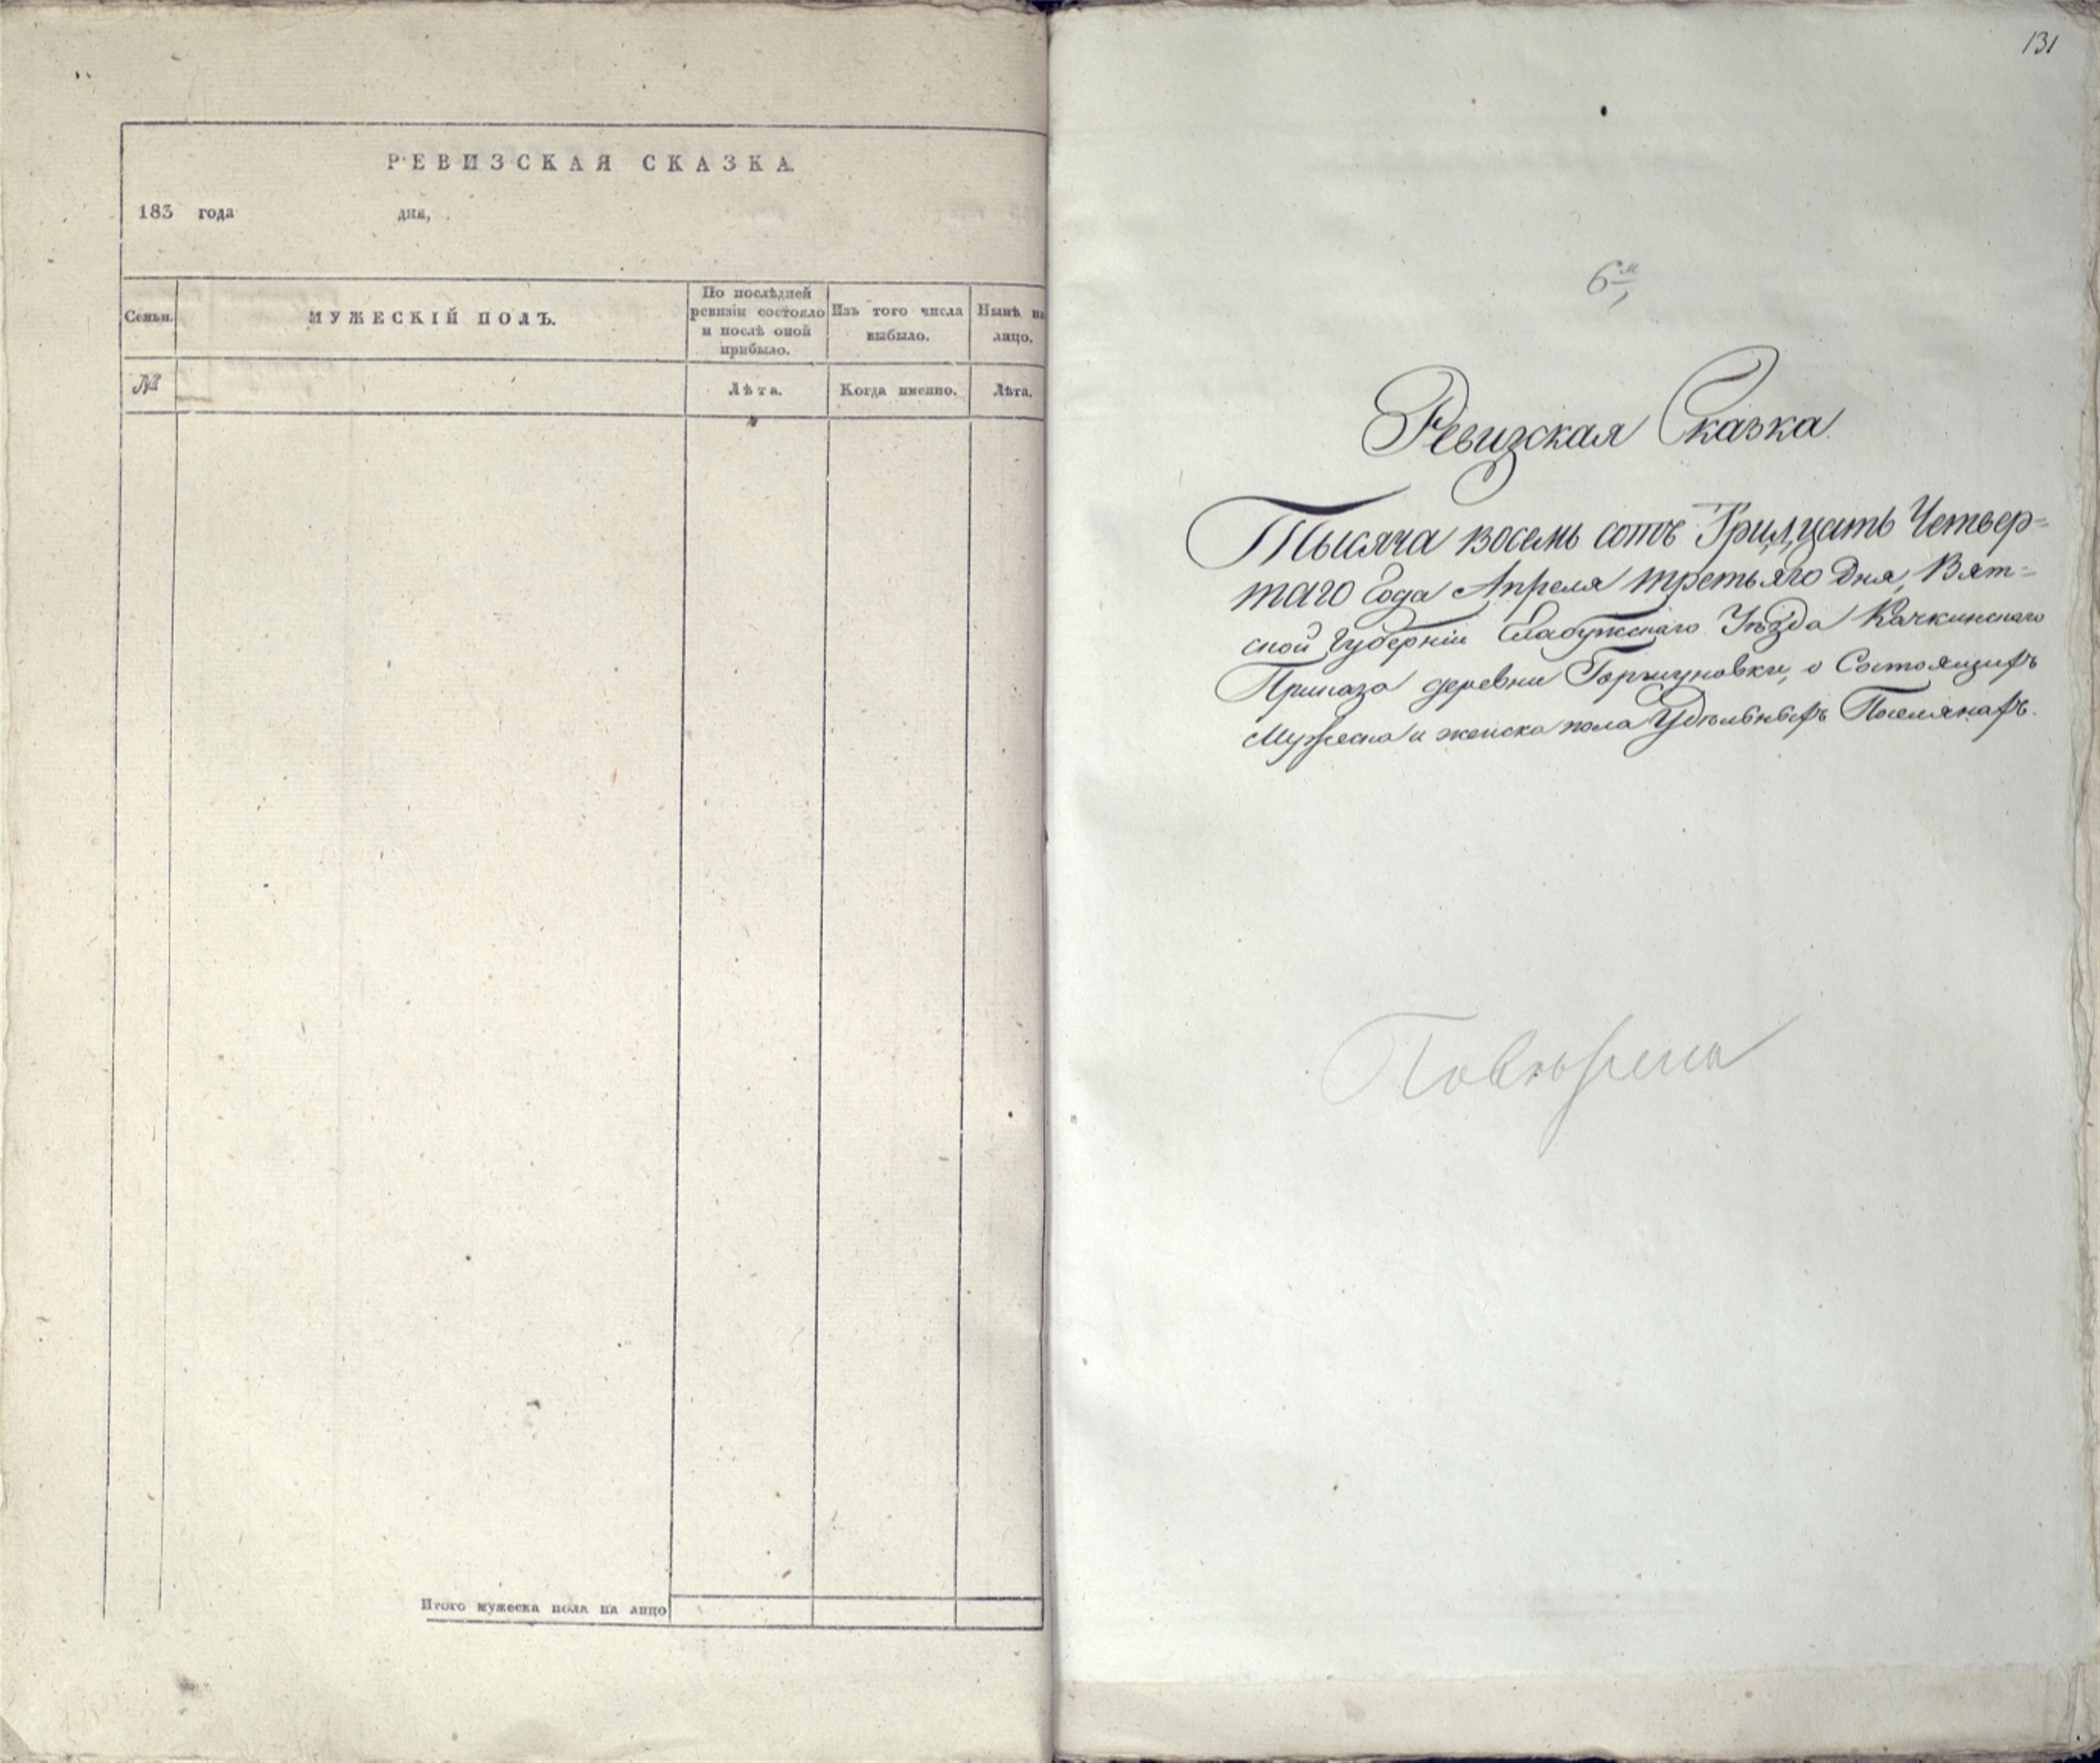 РЕВИЗСКАЯ СКАЗКА.
183 года дня,
Семьи.
МУЖЕСКІЙ ПОЛЪ.
По послѣдней
ревизіи состояло
и послѣ оной
прибыло.
Изъ того числа
выбыло.
Нынѣ на
лицо.
№
Лѣта.
Когда именно.
Лѣта.
Итого мужеска пола на лицо
131
6
Ревизская Сказка.
Тысяча восемь сотъ Тридцать Четвер=
таго Года Апреля третьяго Дня, Вят=
ской Губерніи Елабужскаго Уѣзда Качкинскаго
Приказа деревни Горшуновки, о Состоящихъ
Мужеска и женска пола Удѣльныхъ Поселянахъ.
Повѣрена